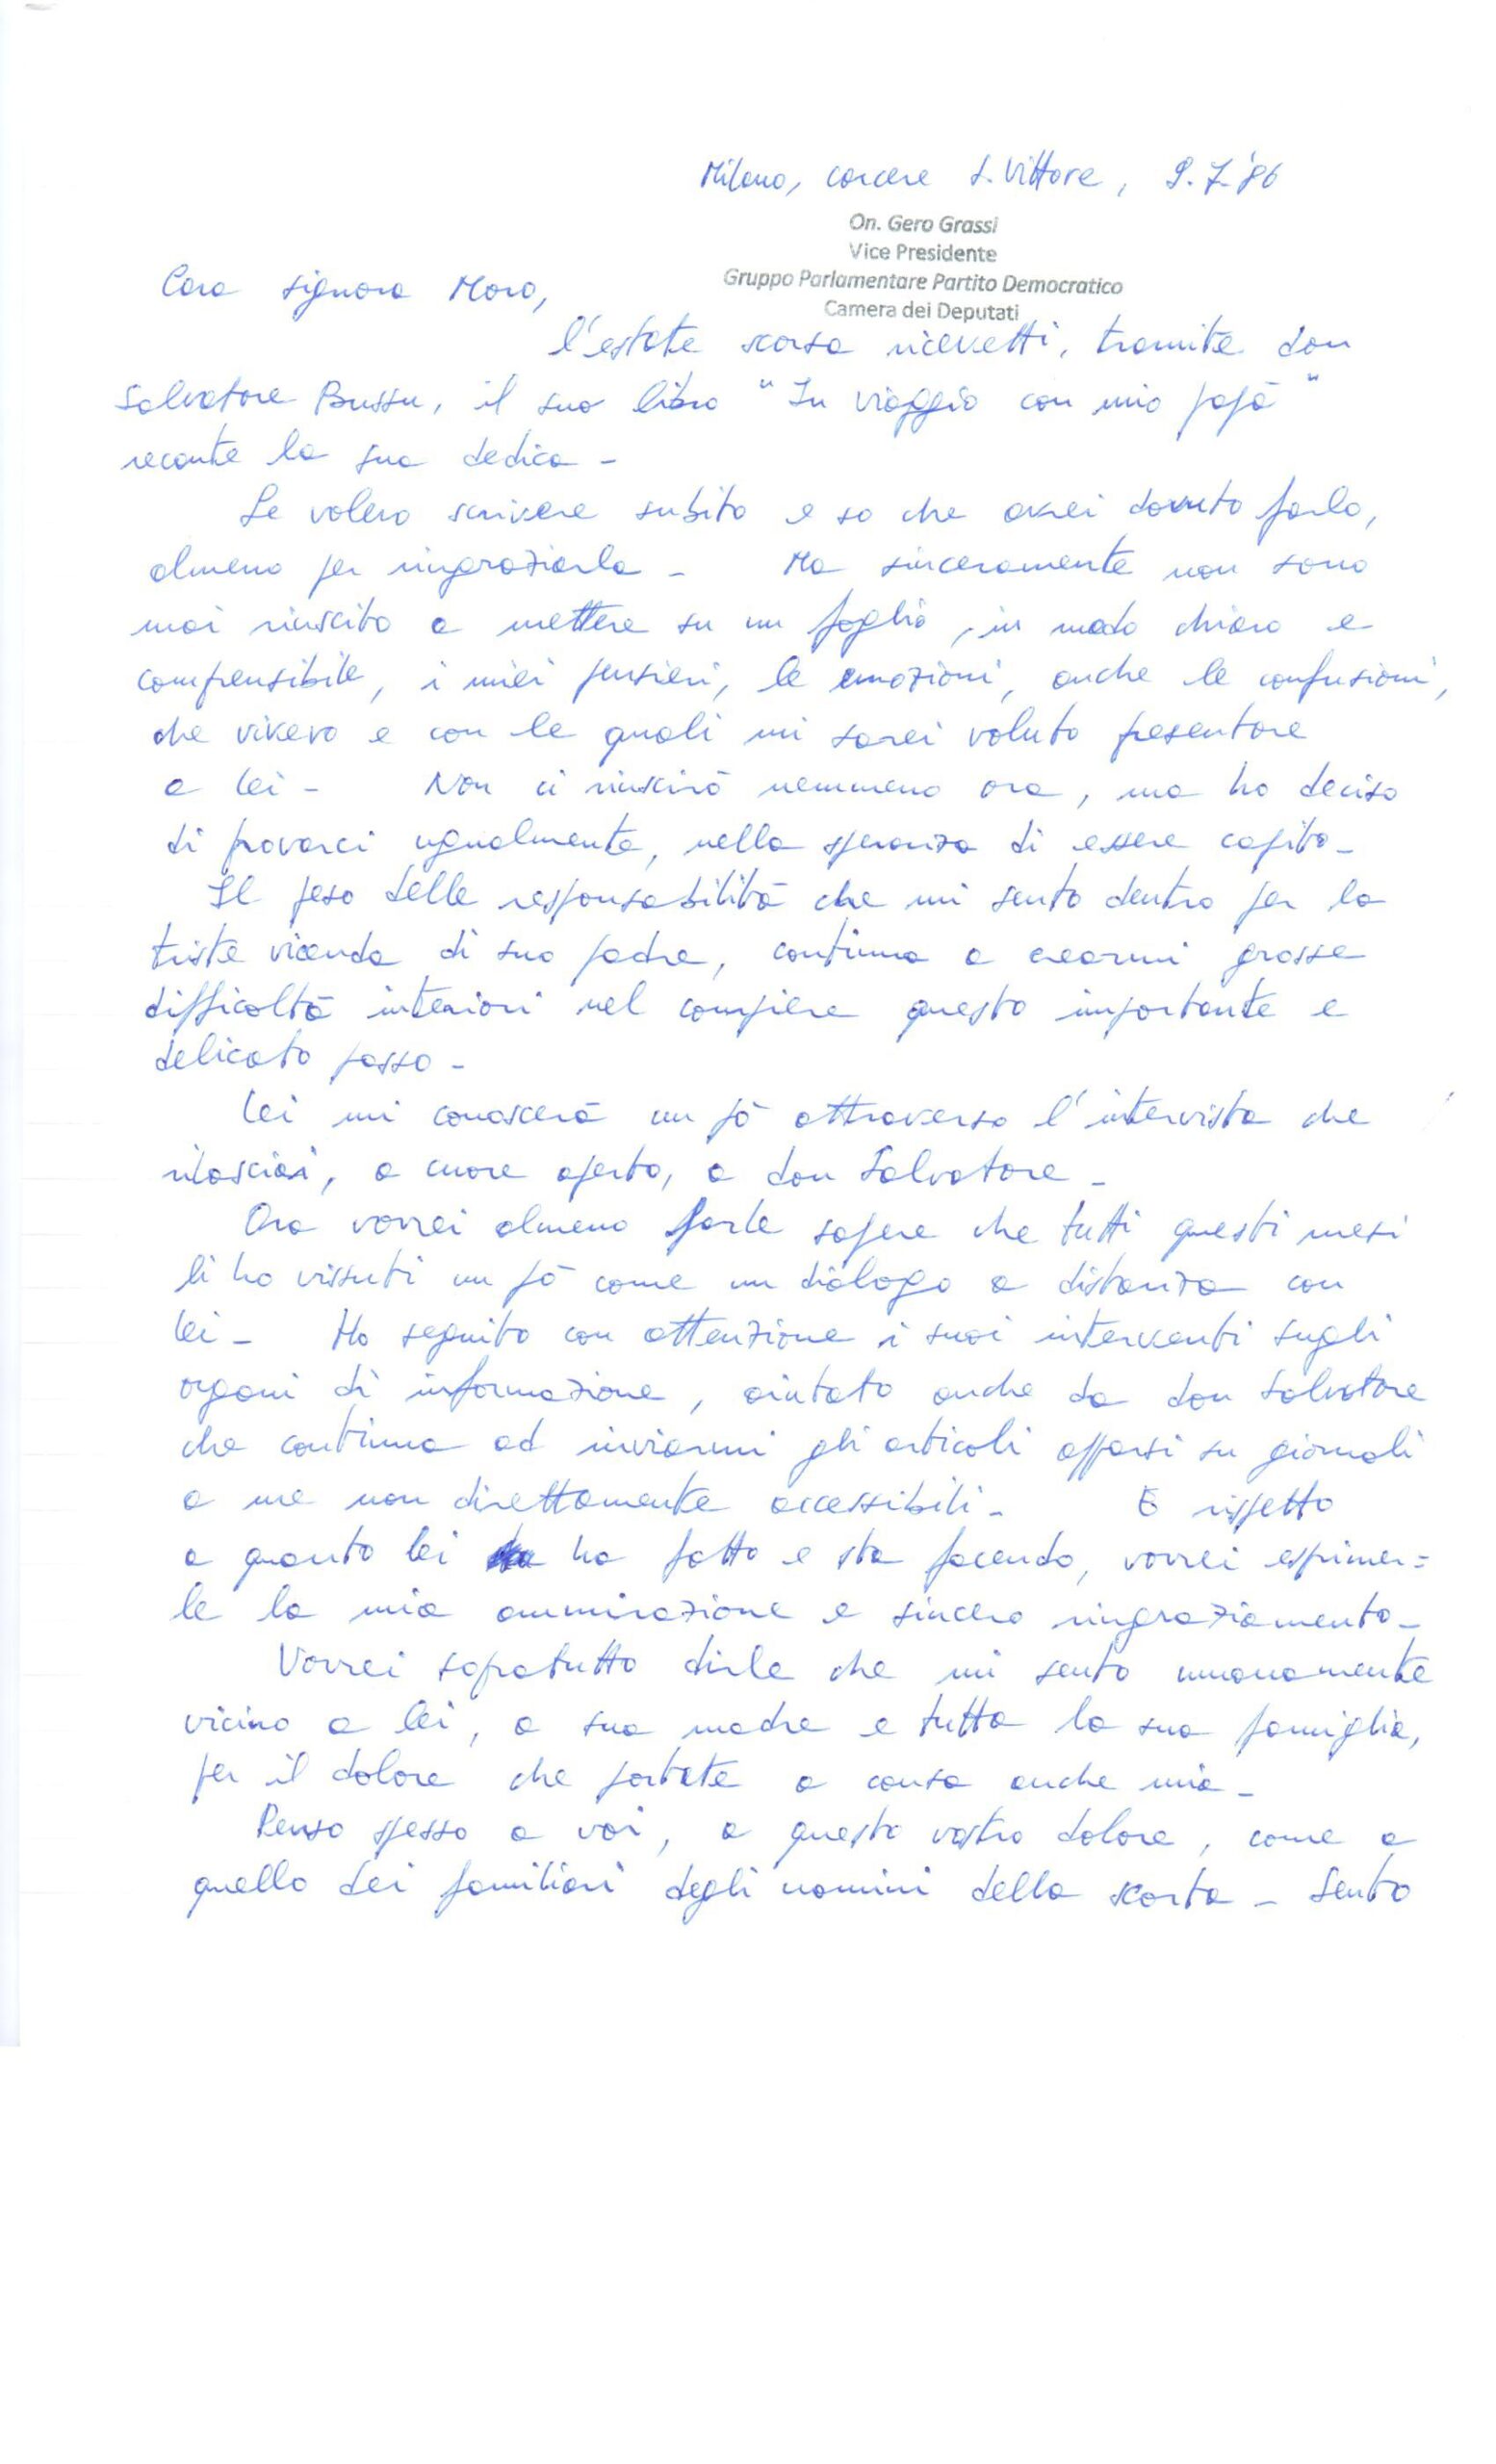 Milano, carcere S. Vittore, 9.7.'86
On. Gero Grassi
Vice Presidente
Gruppo Parlamentare Partito Democratico
Camera dei Deputati
Cara signora Moro,
l'estate scorsa ricevetti, tramite don
Salvatore Bussu, il suo libro "In viaggio con mio papà"
recante la sua dedica -
Le volevo scrivere subito e so che avrei dovuto farlo,
almeno per ringraziarla - Ma sinceramente non sono
mai riuscito a mettere su un foglio, in modo chiaro e
comprensibile, i miei pensieri, le emozioni, anche le confusioni,
che vivevo e con le quali mi sarei voluto presentare
a lei - Non ci riuscirò nemmeno ora, ma ho deciso
di provarci ugualmente, nella speranza di essere capito -
Il peso delle responsabilità che mi sento dentro per la
triste vicenda di suo padre, continua a crearmi grosse
difficoltà interiori nel compiere questo importante e
delicato passo -
Lei mi conoscerà un pò attraverso l'intervista che
rilasciai, a cuore aperto, a don Salvatore -
Ora vorrei almeno farle sapere che tutti questi mesi
li ho vissuti un pò come un dialogo a distanza con
lei - Ho seguito con attenzione i suoi interventi sugli
organi di informazione, aiutato anche da don Salvatore
che continua ad inviarmi gli articoli apparsi su giornali
a me non direttamente accessibili - E rispetto
a quanto lei ha fatto e sta facendo, vorrei esprimer=
le la mia ammirazione e sincero ringraziamento -
Vorrei sopratutto dirle che mi sento umanamente
vicino a lei, a sua madre e tutta la sua famiglia,
per il dolore che portate a causa anche mia -
Penso spesso a voi, a questo vostro dolore, come a
quello dei familiari degli uomini della scorta - Sento